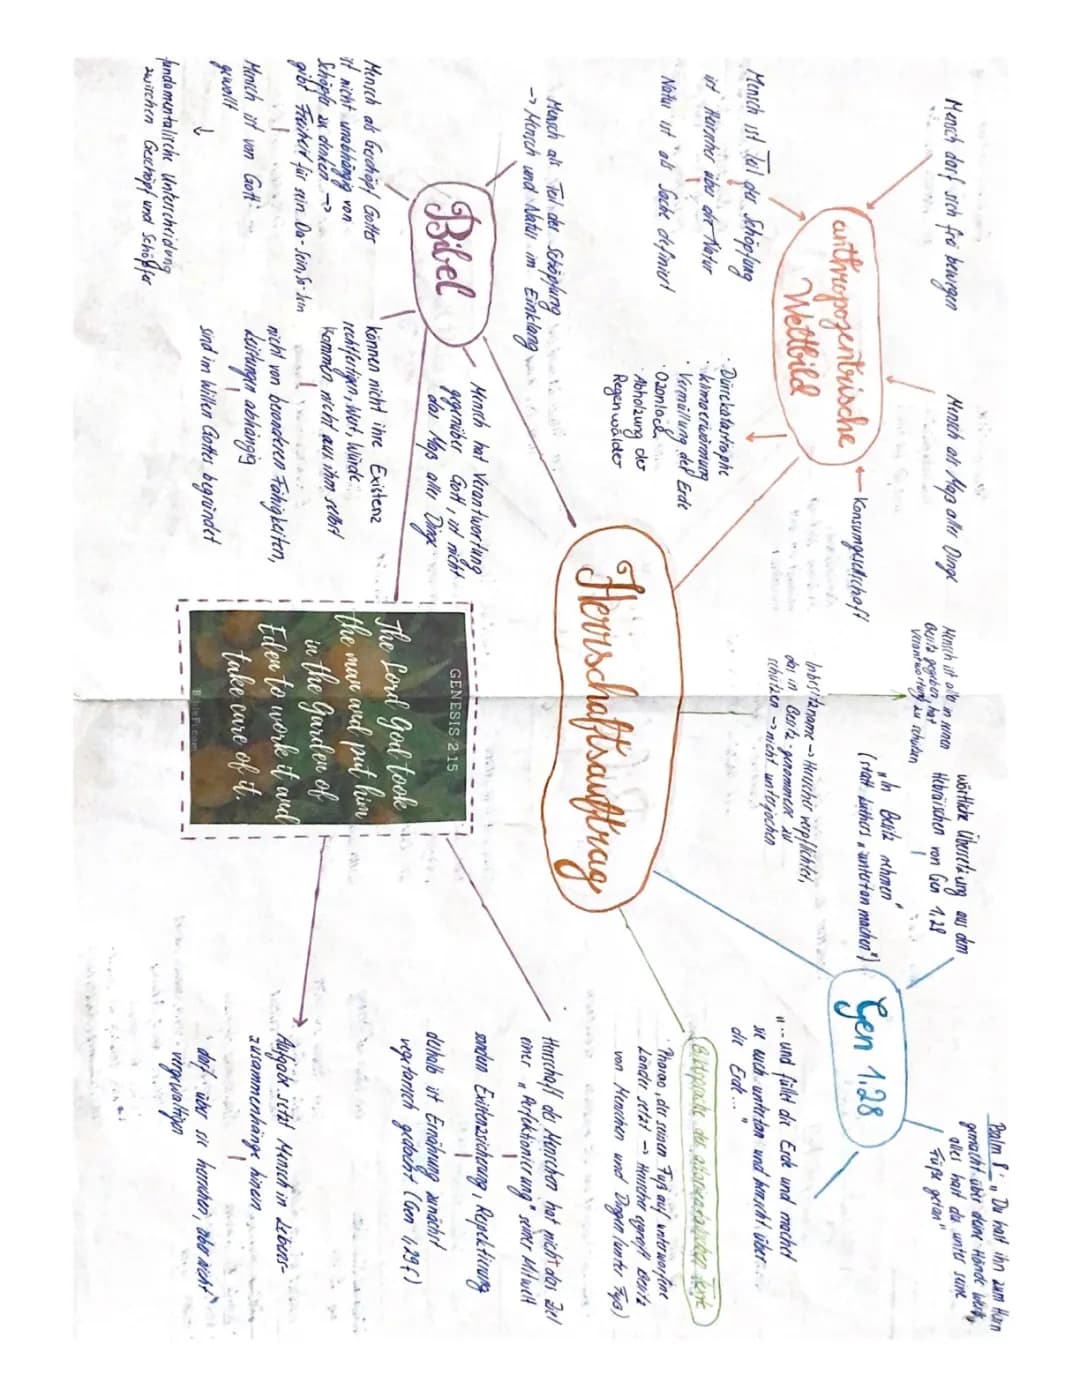 Herrschaftsauftrag
anthropozentrische
Weltbild
Mensch darf sich frei bewegen
Mensch als Maß aller Dinge
Konsumgesellschaft
Mensch ist Teil der Schöpfung
ist Herrscher über die Natur
Natur ist als Sache definiert
· Dürrekatastrophe
· Klimaerwärmung
· Vermüllung der Erde
· Ozonloch
· Abholzung der
Regenwälder
Gen 1,28
wörtliche Übersetzung aus dem
Hebräischen von Gen 1,28
"in Besitz nehmen"
(statt Luthers "untertan machen")
Inbesitznahme → Herrscher verpflichtet,
das in Besitz genommene zu
schützen → nicht unterjochen
Mensch ist alle in seinen
Besitz gegeben, hat
Verantwortung zu
Psalm 8: "Du hast ihn zum Herrn
gemacht über deine Hände Werk,
alles hast du unter seine
Füße getan"
"... und füllet die Erde und machet
sie euch untertan und herrscht über...
die Erde..."
Bildsprache der altorientalischen Texte
· Pharao, der seinen Fuß auf unterworfene
Länder setzt → Herrscher ergreift Besitz
von Menschen und Dingen (unter Fuß)
Bibel
Mensch als Teil der Schöpfung
-> Mensch und Natur im Einklang
Mensch als Geschöpf Gottes
ist nicht unabhängig von
Schöpfer zu denken ->
gibt Freiheit für sein Da-Sein, So-Sein
Mensch ist von Gott
gewollt
fundamentalische Unterscheidung
zwischen Geschöpf und Schöpfer
Mensch hat Verantwortung
gegenüber Gott, ist nicht
das Maß aller Dinge
können nicht ihre Existenz
rechtfertigen, Wert, Würde
kommen nicht aus ihm selbst
nicht von besonderen Fähigkeiten,
Leistungen abhängig
sind im Willen Gottes begründet
GENESIS 2:15
The Lord God took
the man and put him
in the Garden of
Eden to work it and
take care of it.
Herrschaft des Menschen hat nicht das Ziel
einer "Perfektionierung" seiner Mitwelt
sondern Existenzsicherung, Respektierung
deshalb ist Ernährung zunächst
vegetarisch gedacht (Gen 1,29f)
Aufgabe setzt Mensch in Lebens-
zusammenhänge hinein
darf über sie herrschen, aber nicht
vergewaltigen